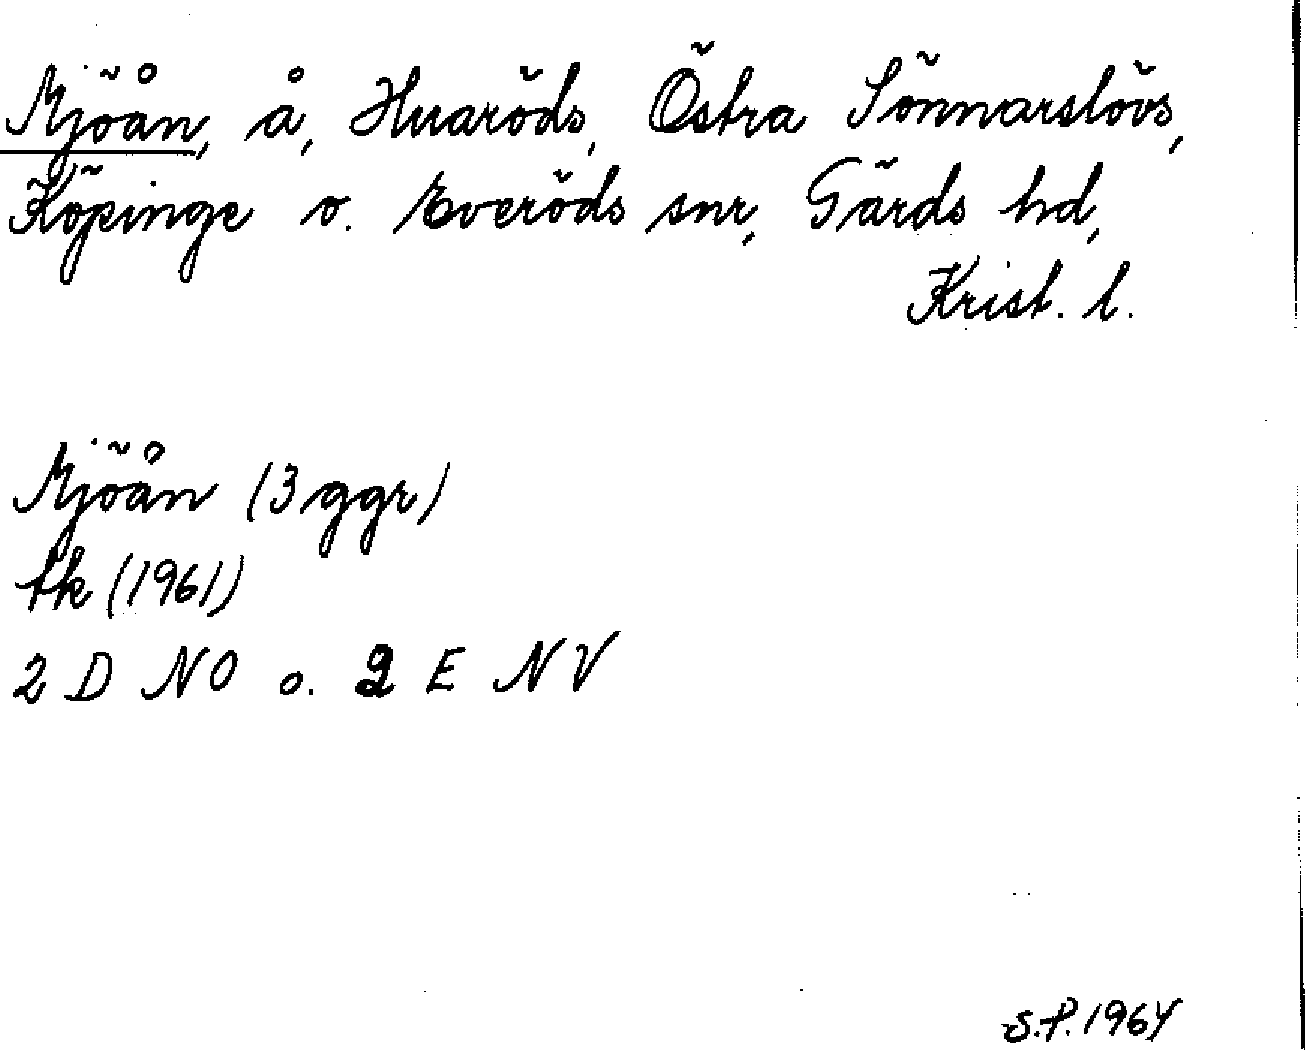 Mjöån, å, Huaröds, Östra Sönnarslövs,
Köpinge o. Everöds snr, Gärds hd,
Krist. l.
Mjöån (3 ggr)
tk (1961)
2 D NO o. 2 E NV
S.P. 1964